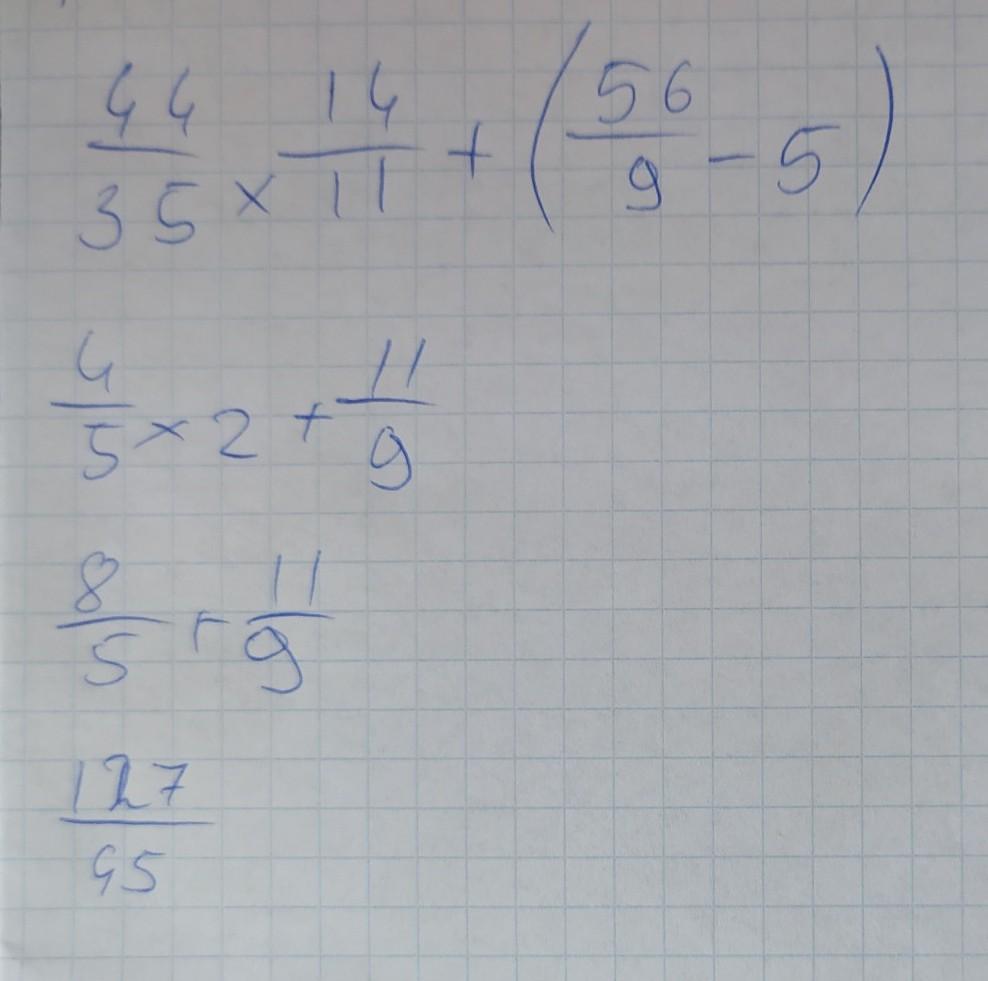 44/35 × 14/11 + (56/9 - 5)
4/5 × 2 + 11/9
8/5 + 11/9
127/45